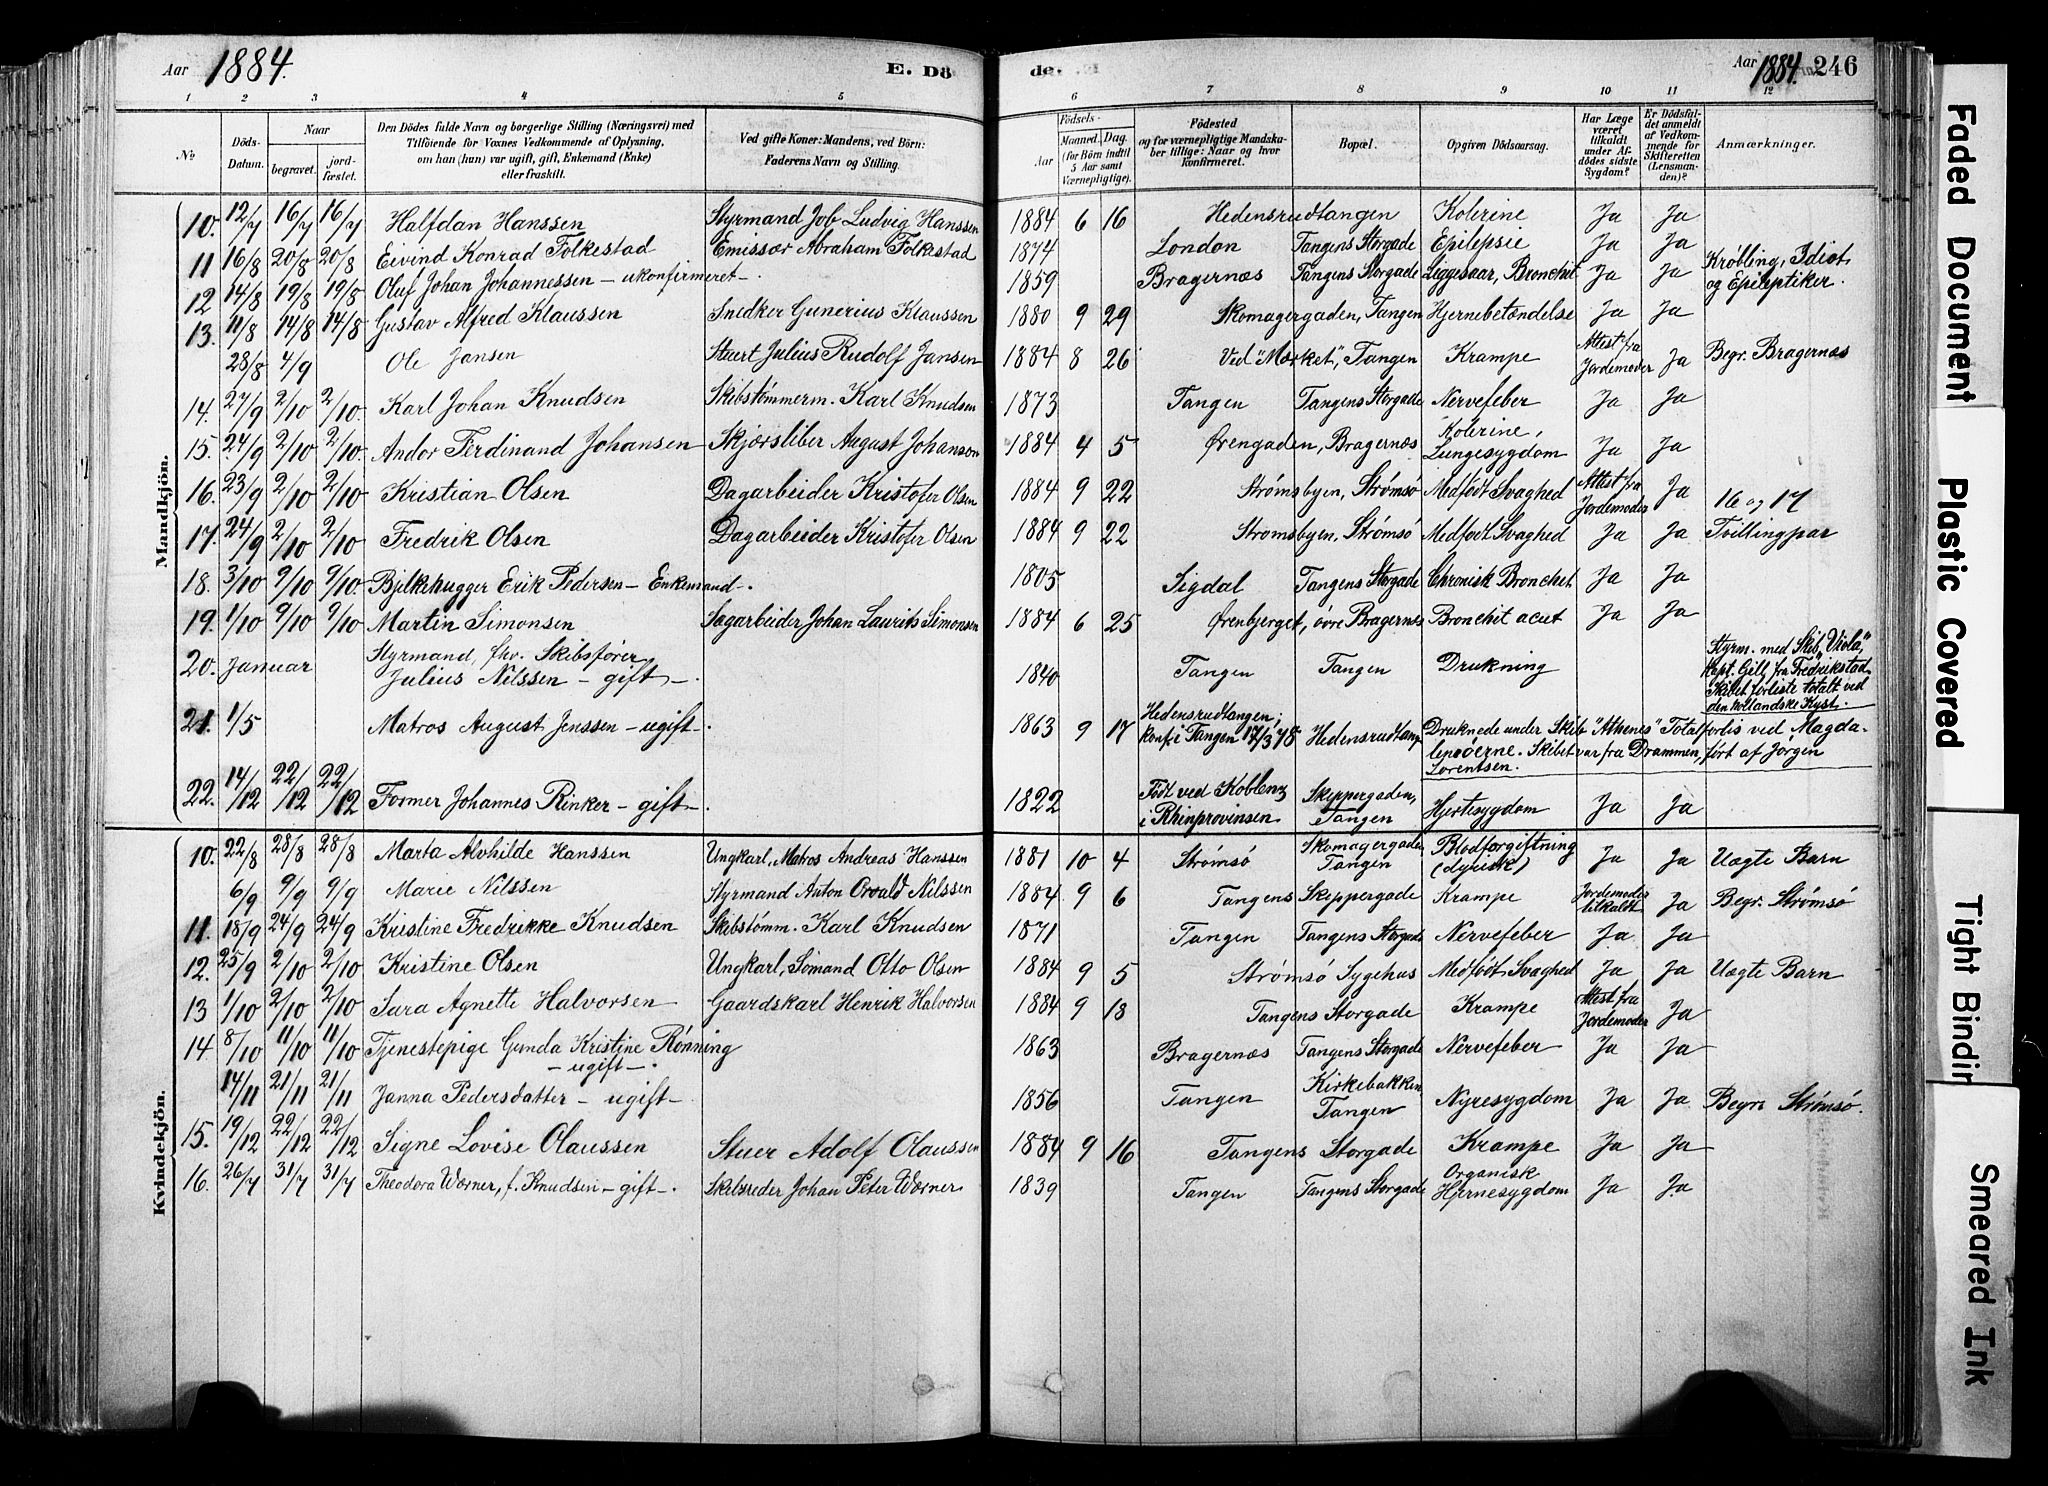 Aar 1884. E. Dö de. Aar 1884. 246
1 2 3 4 5 6 7 8 9 10 11 12
No
Döds-Datum.
Naar
begravet.
jord-fæstet.
Den Dödes fulde Navn og borgerlige Stilling (Næringsvei) med
Tilföiende for Voxnes Vedkommende af Oplysning,
om han (hun) var ugift, gift, Enkemand (Enke)
eller fraskilt.
Ved gifte Koner: Mandens, ved Börn:
Faderens Navn og Stilling.
Födsels-
Aar
Maaned. Dag.
(for Börn indtil
5 Aar samt
Værnepligtige).
Födested
og for værnepligtige Mandska-
ber tillige: Naar og hvor
konfirmeret.
Bopæl.
Opgiven Dödsaarsag.
Har Læge
været
tilkaldt
under Af-
dödes sidste
Sygdom?
Er Dödsfal-
det anmeldt
af Vedkom-
mende for
Skifteretten
(Lensman-
den)?
Anmærkninger.
Mandkjön.
10. 12/7 16/7 16/7 Halfdan Hanssen Styrmand Job Ludvig Hanssen 1884 6 16 Hedensrudtangen Kolerine Ja Ja
11 16/8 20/8 20/8 Eivind Konrad Folkestad Emissær Abraham Folkestad 1874 London Tangens Storgade Epilepsie Ja Ja Krøbling, Idiot
og Epileptiker.
12 14/8 19/8 19/8 Oluf Johan Johannessen – ukonfirmeret –. 1859 Bragernæs Tangens Storgade Liggesaar, Bronchit Ja Ja
13. 11/8 14/8 14/8 Gustav Alfred Klaussen Snedker Gunerius Klaussen 1880 9 29 Skomagergaden, Tangen Hjernebetændelse Ja Ja
28/8 4/9 Ole Jansen Stuert Julius Rudolf Jansen 1884 8 26 Ved "Mærket", Tangen Krampe Attest fra Jordemoder Ja Begr. Bragernæs
14. 27/9 2/10 2/10. Karl Johan Knudsen Skibstømmerm. Karl Knudsen 1873 Tangen Tangens Storgade Nervefeber Ja Ja
15. 24/9 2/10 2/10. Andor Ferdinand Johansen Skjærsliber August Johansen 1884 4 5 Ørengaden, Bragernæs Kolerine, Lungesygdom Ja Ja
16. 23/9 2/10 2/10 Kristian Olsen Dagarbeider Kristofer Olsen 1884 9 22 Strømsbyen, Strømsø Medfødt Svaghed Attest fra Jordemoder Ja 16 og 17
17. 24/9 2/10 2/10 Fredrik Olsen Dagarbeider Kristofer Olsen 1884 9 22 Strømsbyen, Strømsø Medfødt Svaghed Ja Ja Tvillingpar
18. 3/10 9/10 9/10. Bjelkehugger Erik Pedersen – Enkemand –. 1805 Sigdal Tangens Storgade Chronisk Bronchit Ja Ja
19. 1/10 9/10 9/10 Martin Simonsen Sagarbeider Johan Laurits Simonsen 1884 6 25 Ørenbjerget, övre Bragernæs Bronchit acut Ja Ja
20. Januar Styrmand, fhv. Skibsfører
Julius Nilssen – gift –. 1840 Tangen Tangen Drukning Styrm. med Skib "Viola",
Kapt. Gill fra Fredrikstad
Skibet forliste totalt ved
den hollandske Kyst.
21. 1/5 Matros August Jenssen – ugift –. 1863 9 17 Hedensrudtangen;
konf. i Tangen 17/3 78 Hedensrudtang. Druknede under Skib "Athenes" Totalforlis ved Magda-
leneöerne. Skibet var fra Drammen, ført af Jörgen
Lorentsen.
22. 14/12 22/12 22/12 Former Johannes Rinker – gift –. 1822 Födt ved Koblenz
i Rhinprovinsen Skippergaden, Tangen Hjertesygdom Ja Ja
Kvindekjön.
10. 22/8 28/8 28/8 Marta Alvhilde Hanssen Ungkarl, Matros Andreas Hanssen 1881 10 4 Strømsø Skomagergaden Tangen Blodforgiftning Ja Ja Uægte Barn
6/9 9/9 9/9 Marie Nilssen Styrmand Anton Osvald Nilssen 1884 9 6 Tangens Skippergade Krampe Jordemoder tilkaldt Ja Begr. Strømsø
11. 18/9 24/9 24/9 Kristine Fredrikke Knudsen Skibstømm. Karl Knudsen 1871 Tangen Tangens Storgade Nervefeber Ja Ja
12. 25/9 2/10 2/10 Kristine Olsen Ungkarl, Sömand Otto Olsen 1884 9 5 Strømsø Sygehus Medfødt Svaghed Ja Ja Uægte Barn
13 1/10 2/10 2/10 Sara Agnette Halvorsen Gaardskarl Henrik Halvorsen 1884 9 18 Tangens Storgade Krampe Attest fra Jordemoder Ja
14. 8/10 11/10 11/10 Tjenestepige Gunda Kristine Rönning
– ugift –. 1863 Bragernæs Tangens Storgade Nervefeber Ja Ja
14/11 21/11 21/11 Janna Pedersdatter – ugift – 1856 Tangen Kirkebakken Tangen Nyresygdom Ja Ja Begr. Strømsø.
15. 19/12 22/12 22/12 Signe Lovise Olaussen Stuer Adolf Olaussen 1884 9 16 Tangens Storgade Krampe Ja Ja
16. 26/7 31/7 31/7 Theodora Wörner, f. Knudsen – gift –. Skibsreder Johan Peter Wörner 1839 Tangen Tangens Storgade Organisk Hjernesygdom Ja Ja
Faded Document
Plastic Covered
Tight Bindin
Smeared Ink